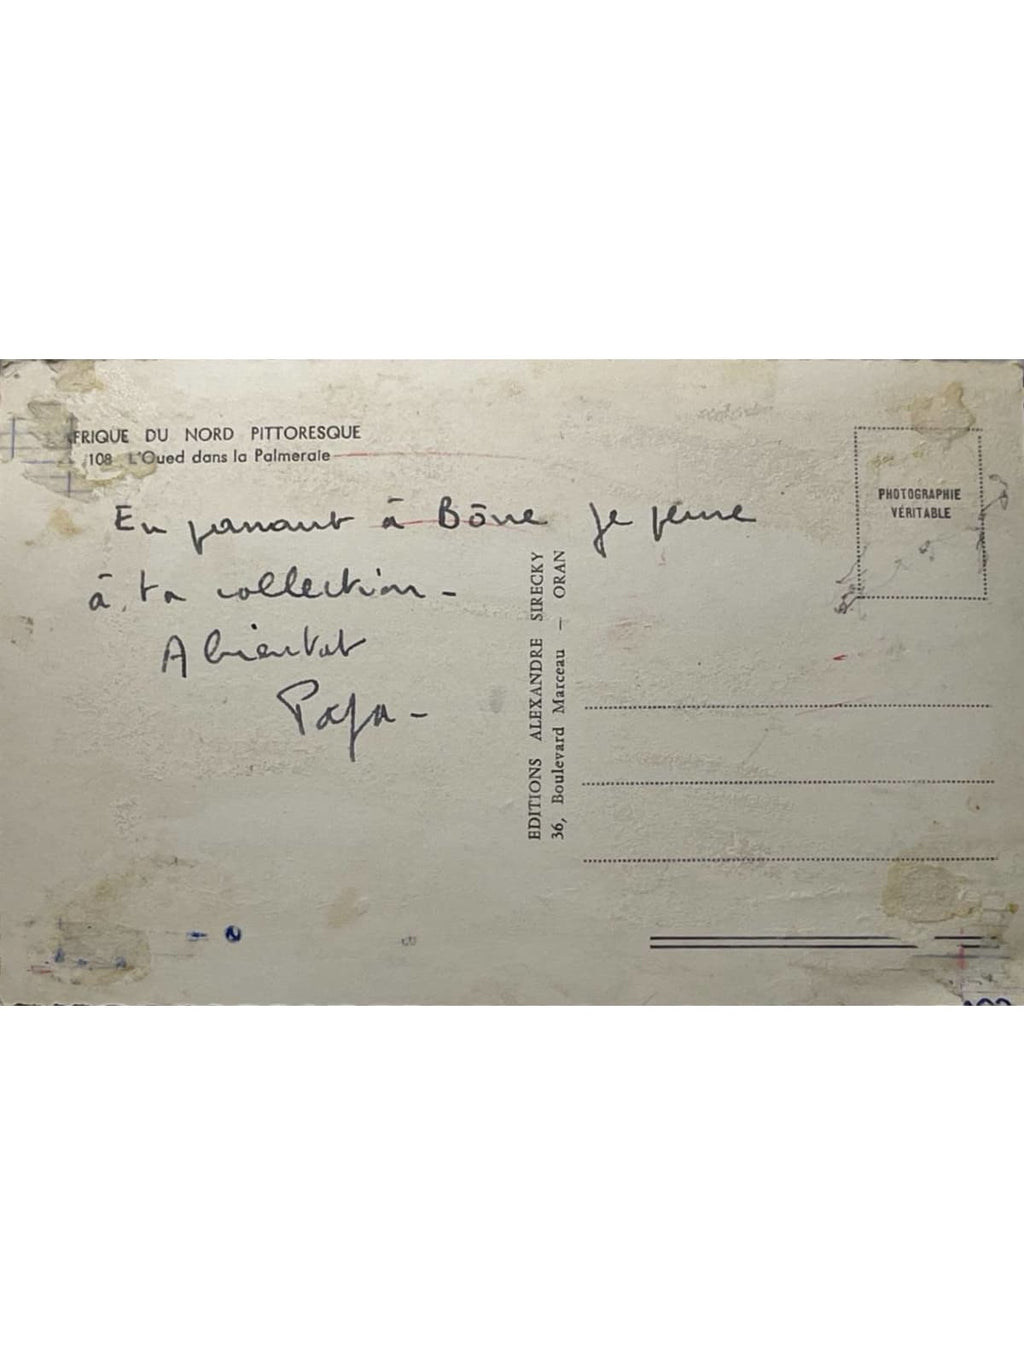 FRIQUE DU NORD PITTORESQUE
108 L'Oued dans la Palmeraie
En passant à Bône je pense
à ta collection -
A bientot
Papa -
EDITIONS ALEXANDRE SIRECKY
36, Boulevard Marceau — ORAN
PHOTOGRAPHIE
VÉRITABLE